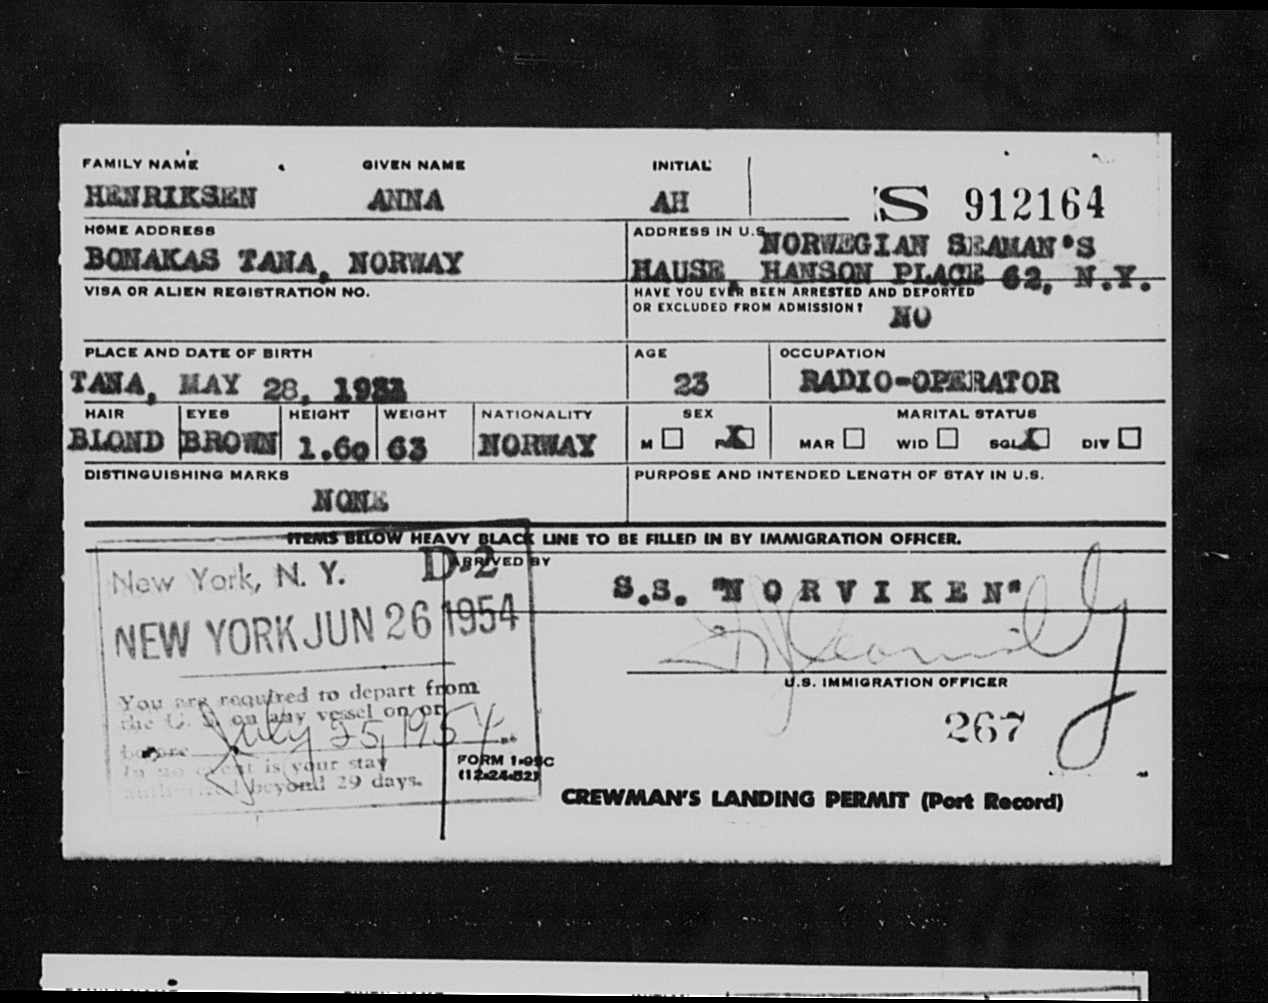 FAMILY NAME GIVEN NAME INITIAL
HENRIKSEN ANNA AH S 912164
HOME ADDRESS ADDRESS IN U.S.
BONAKAS TANA, NORWAY NORWEGIAN SEAMAN'S
HAUSE, HANSON PLACE 62, N.Y.
VISA OR ALIEN REGISTRATION NO. HAVE YOU EVER BEEN ARRESTED AND DEPORTED
OR EXCLUDED FROM ADMISSION? NO
PLACE AND DATE OF BIRTH AGE OCCUPATION
TANA, MAY 28, 1931 23 RADIO-OPERATOR
HAIR EYES HEIGHT WEIGHT NATIONALITY SEX MARITAL STATUS
BLOND BROWN 1.60 63 NORWAY M F X MAR WID SGL X DIV
DISTINGUISHING MARKS PURPOSE AND INTENDED LENGTH OF STAY IN U.S.
NONE
ITEMS BELOW HEAVY BLACK LINE TO BE FILLED IN BY IMMIGRATION OFFICER.
New York, N. Y. D-2 ARRIVED BY
S.S. "NORVIKEN"
NEW YORK JUN 26 1954
You are required to depart from
the U. S. on any vessel on or
before July 25, 1954.
In no event is your stay
authorized beyond 29 days.
U.S. IMMIGRATION OFFICER
267
FORM I-95C
(12-24-52)
CREWMAN'S LANDING PERMIT (Port Record)